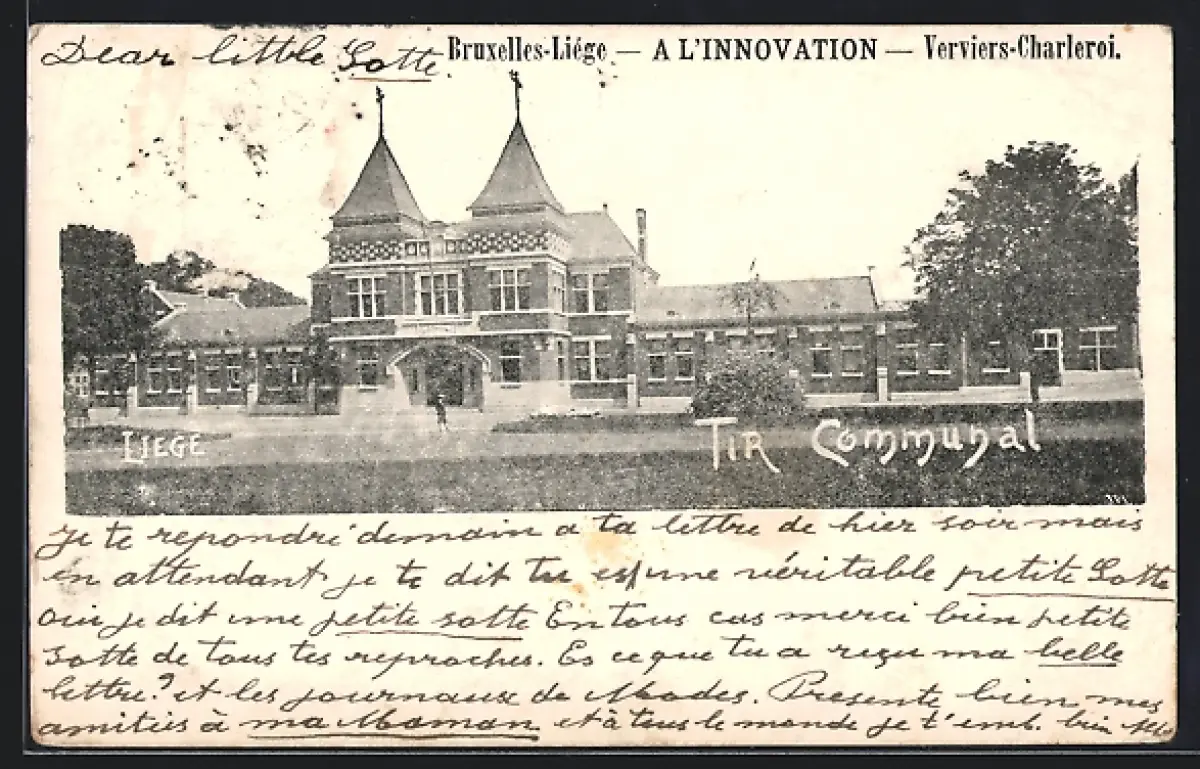 Dear little Sotte.
Bruxelles-Liége — A L'INNOVATION — Verviers-Charleroi.
LIEGE
TIR Communal
Je te repondré demain a ta lettre de hier soir mais
En attendant je te dit tu es une véritable petite Sotte
oui je dit une petite sotte En tous cas merci bien petite
Sotte de tous tes reproches. Es ce que tu a reçu ma belle
lettre? et les journaux de Modes. Presente bien mes
amitiés à ma Maman et à tous le monde je t'emb. bien